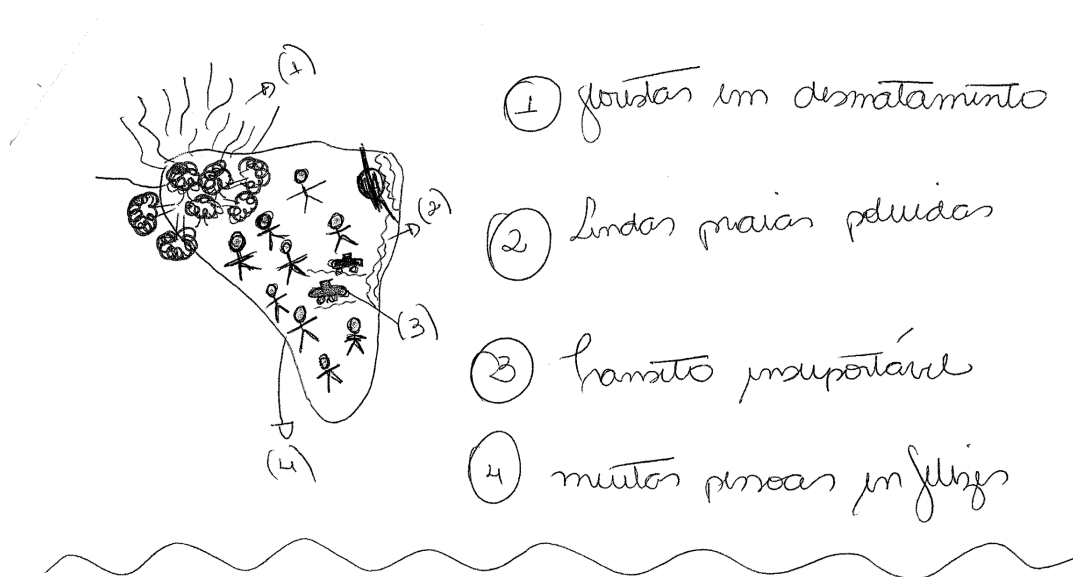 (1)
① florestas em desmatamento
(2)
② Lindas praias poluidas
(3)
③ Transito insuportável
(4)
④ muitas pessoas infelizes